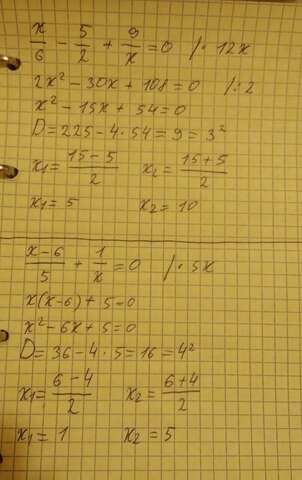 x/6 - 5/2 + 9/x = 0 /· 12x
2x² - 30x + 108 = 0 /: 2
x² - 15x + 54 = 0
D = 225 - 4·54 = 9 = 3²
x₁ = (15 - 5)/2 x₂ = (15 + 5)/2
x₁ = 5 x₂ = 10
(x-6)/5 + 1/x = 0 /· 5x
x(x-6) + 5 = 0
x² - 6x + 5 = 0
D = 36 - 4·5 = 16 = 4²
x₁ = (6 - 4)/2 x₂ = (6 + 4)/2
x₁ = 1 x₂ = 5